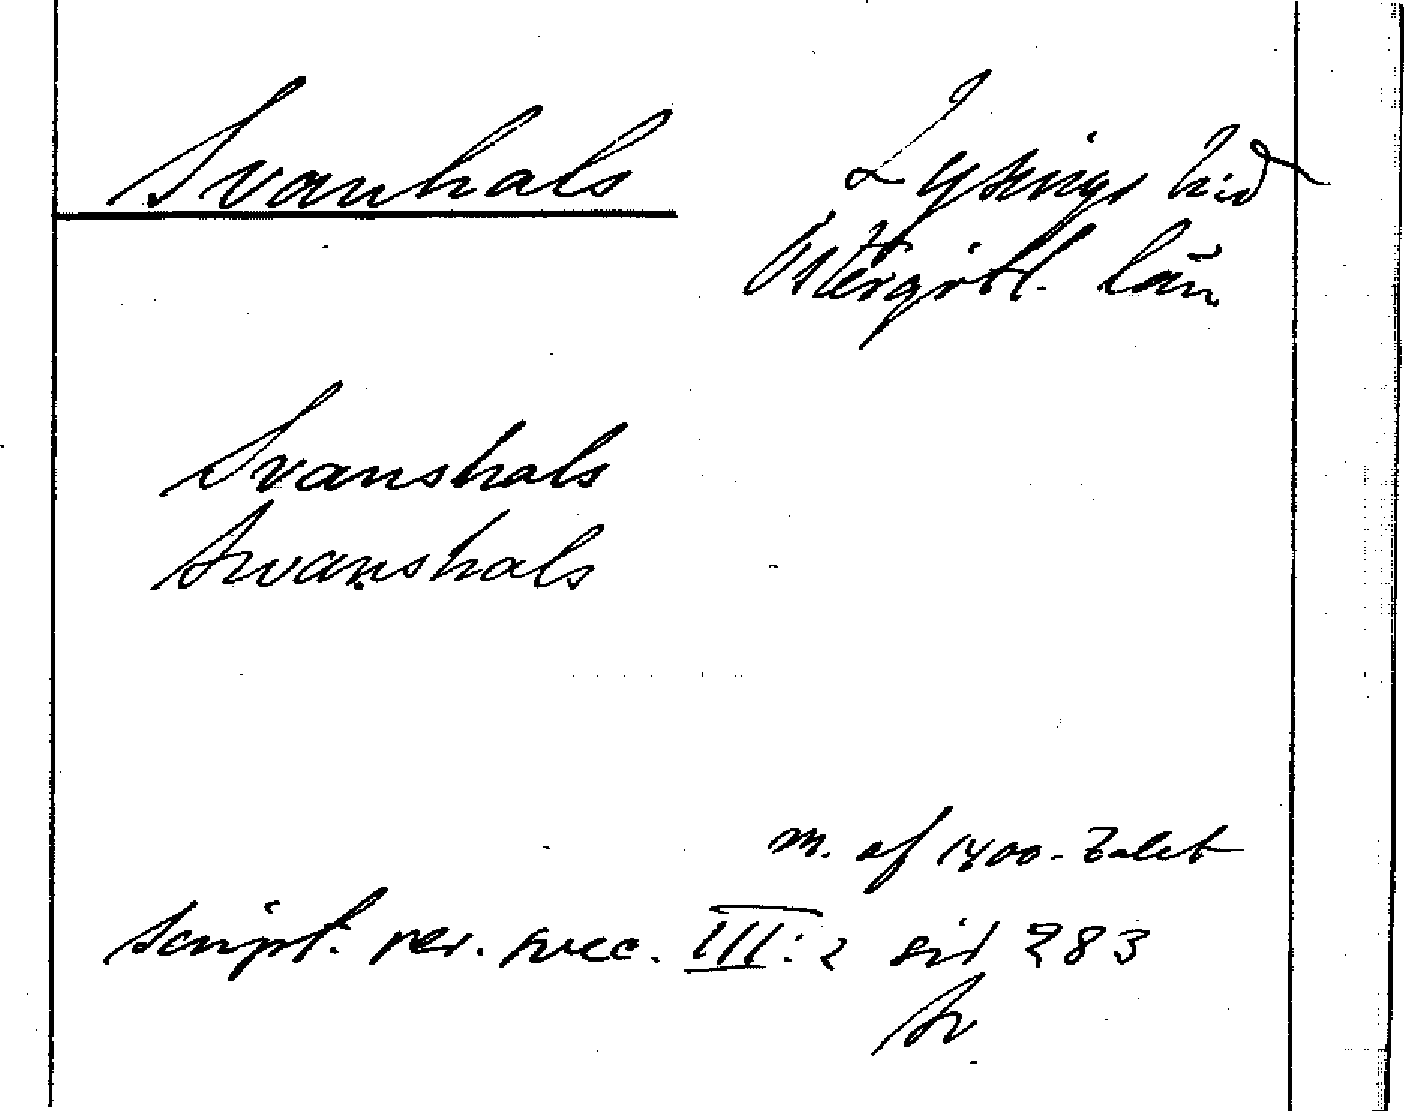 Svanhals
Lysings hd
Östergötl. län
Svanshals
Swanshals
m. af 1400-talet
Script. rer. svec. III:2 sid 283
Sv.